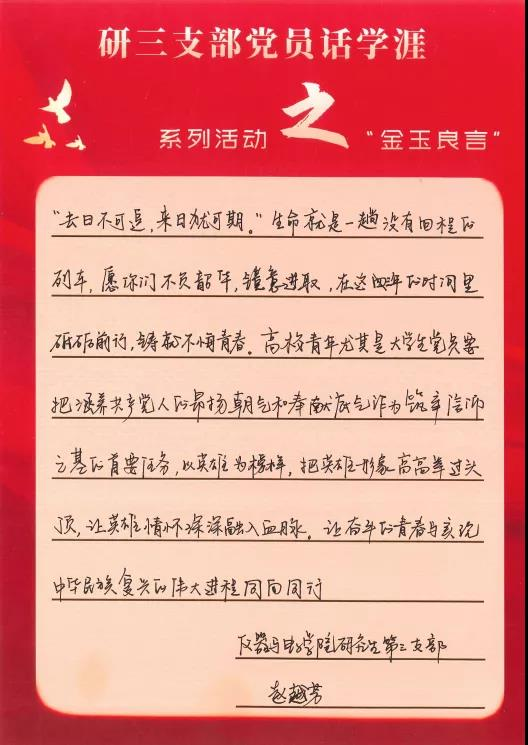 研三支部党员话学涯
系列活动 之 “金玉良言”
“去日不可追，来日犹可期。”生命就是一趟没有回程的
列车，愿你们不负韶华，锐意进取，在这四年的时间里
砥砺前行，铸就不悔青春。高校青年尤其是大学生党员要
把涵养共产党人的昂扬朝气和奉献底气作为筑牢信仰
之基的首要任务，以英雄为榜样，把英雄形象高高举过头
顶，让英雄情怀深深融入血脉。让奋斗的青春与实现
中华民族复兴的伟大进程同向同行
仪器与电子学院研究生第三支部
赵越芳